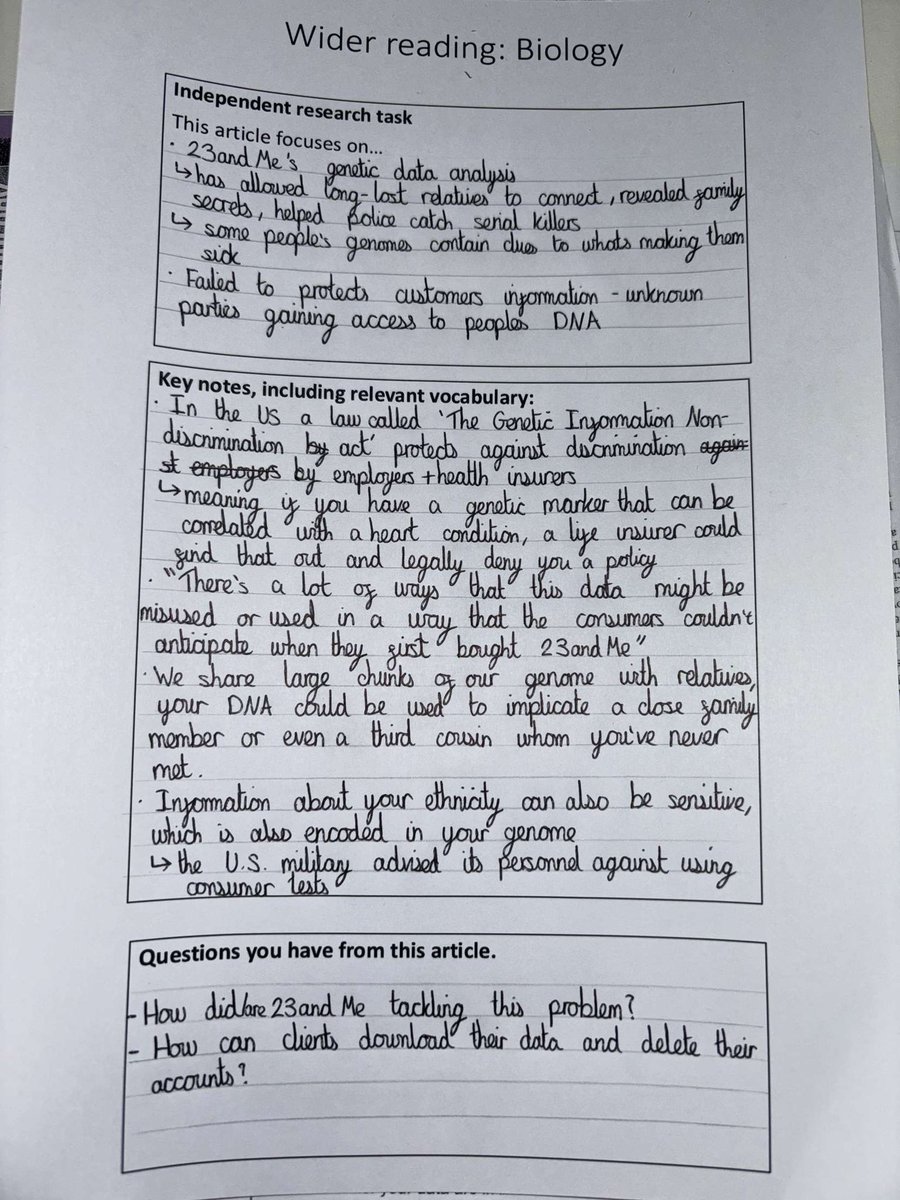 Wider reading: Biology
Independent research task
This article focuses on...
· 23andMe's genetic data analysis
↳ has allowed long-lost relatives to connect, revealed family
secrets, helped police catch serial killers
↳ some people's genomes contain clues to whats making them
sick
· Failed to protects customers information - unknown
parties gaining access to peoples DNA
Key notes, including relevant vocabulary:
· In the US a law called 'The Genetic Information Non-
discrimination by act' protects against discrimination again
st employers by employers + health insurers
↳ meaning if you have a genetic marker that can be
correlated with a heart condition, a life insurer could
find that out and legally deny you a policy
· "There's a lot of ways that this data might be
misused or used in a way that the consumers couldn't
anticipate when they first bought 23andMe"
· We share large chunks of our genome with relatives,
your DNA could be used to implicate a close family
member or even a third cousin whom you've never
met.
· Information about your ethnicity can also be sensitive,
which is also encoded in your genome
↳ the U.S. military advised its personnel against using
consumer tests
Questions you have from this article.
- How did/are 23andMe tackling this problem?
- How can clients download their data and delete their
accounts?